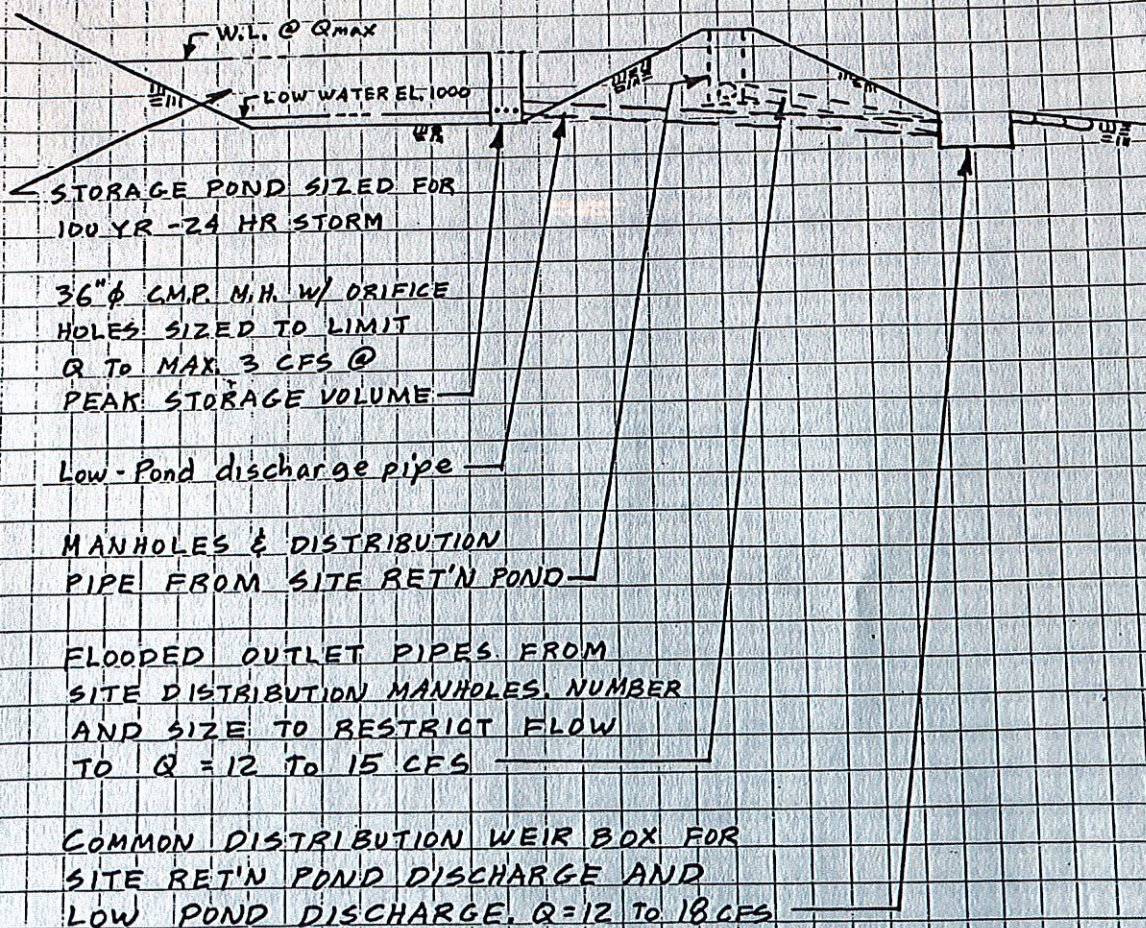 W.L. @ Qmax
LOW WATER EL. 1000
STORAGE POND SIZED FOR
100 YR - 24 HR STORM
36"ϕ C.M.P. M.H. W/ ORIFICE
HOLES SIZED TO LIMIT
Q TO MAX. 3 CFS @
PEAK STORAGE VOLUME
Low-Pond discharge pipe
MANHOLES & DISTRIBUTION
PIPE FROM SITE RET'N POND
FLOODED OUTLET PIPES FROM
SITE DISTRIBUTION MANHOLES. NUMBER
AND SIZE TO RESTRICT FLOW
TO Q = 12 TO 15 CFS
COMMON DISTRIBUTION WEIR BOX FOR
SITE RET'N POND DISCHARGE AND
LOW POND DISCHARGE. Q = 12 TO 18 CFS